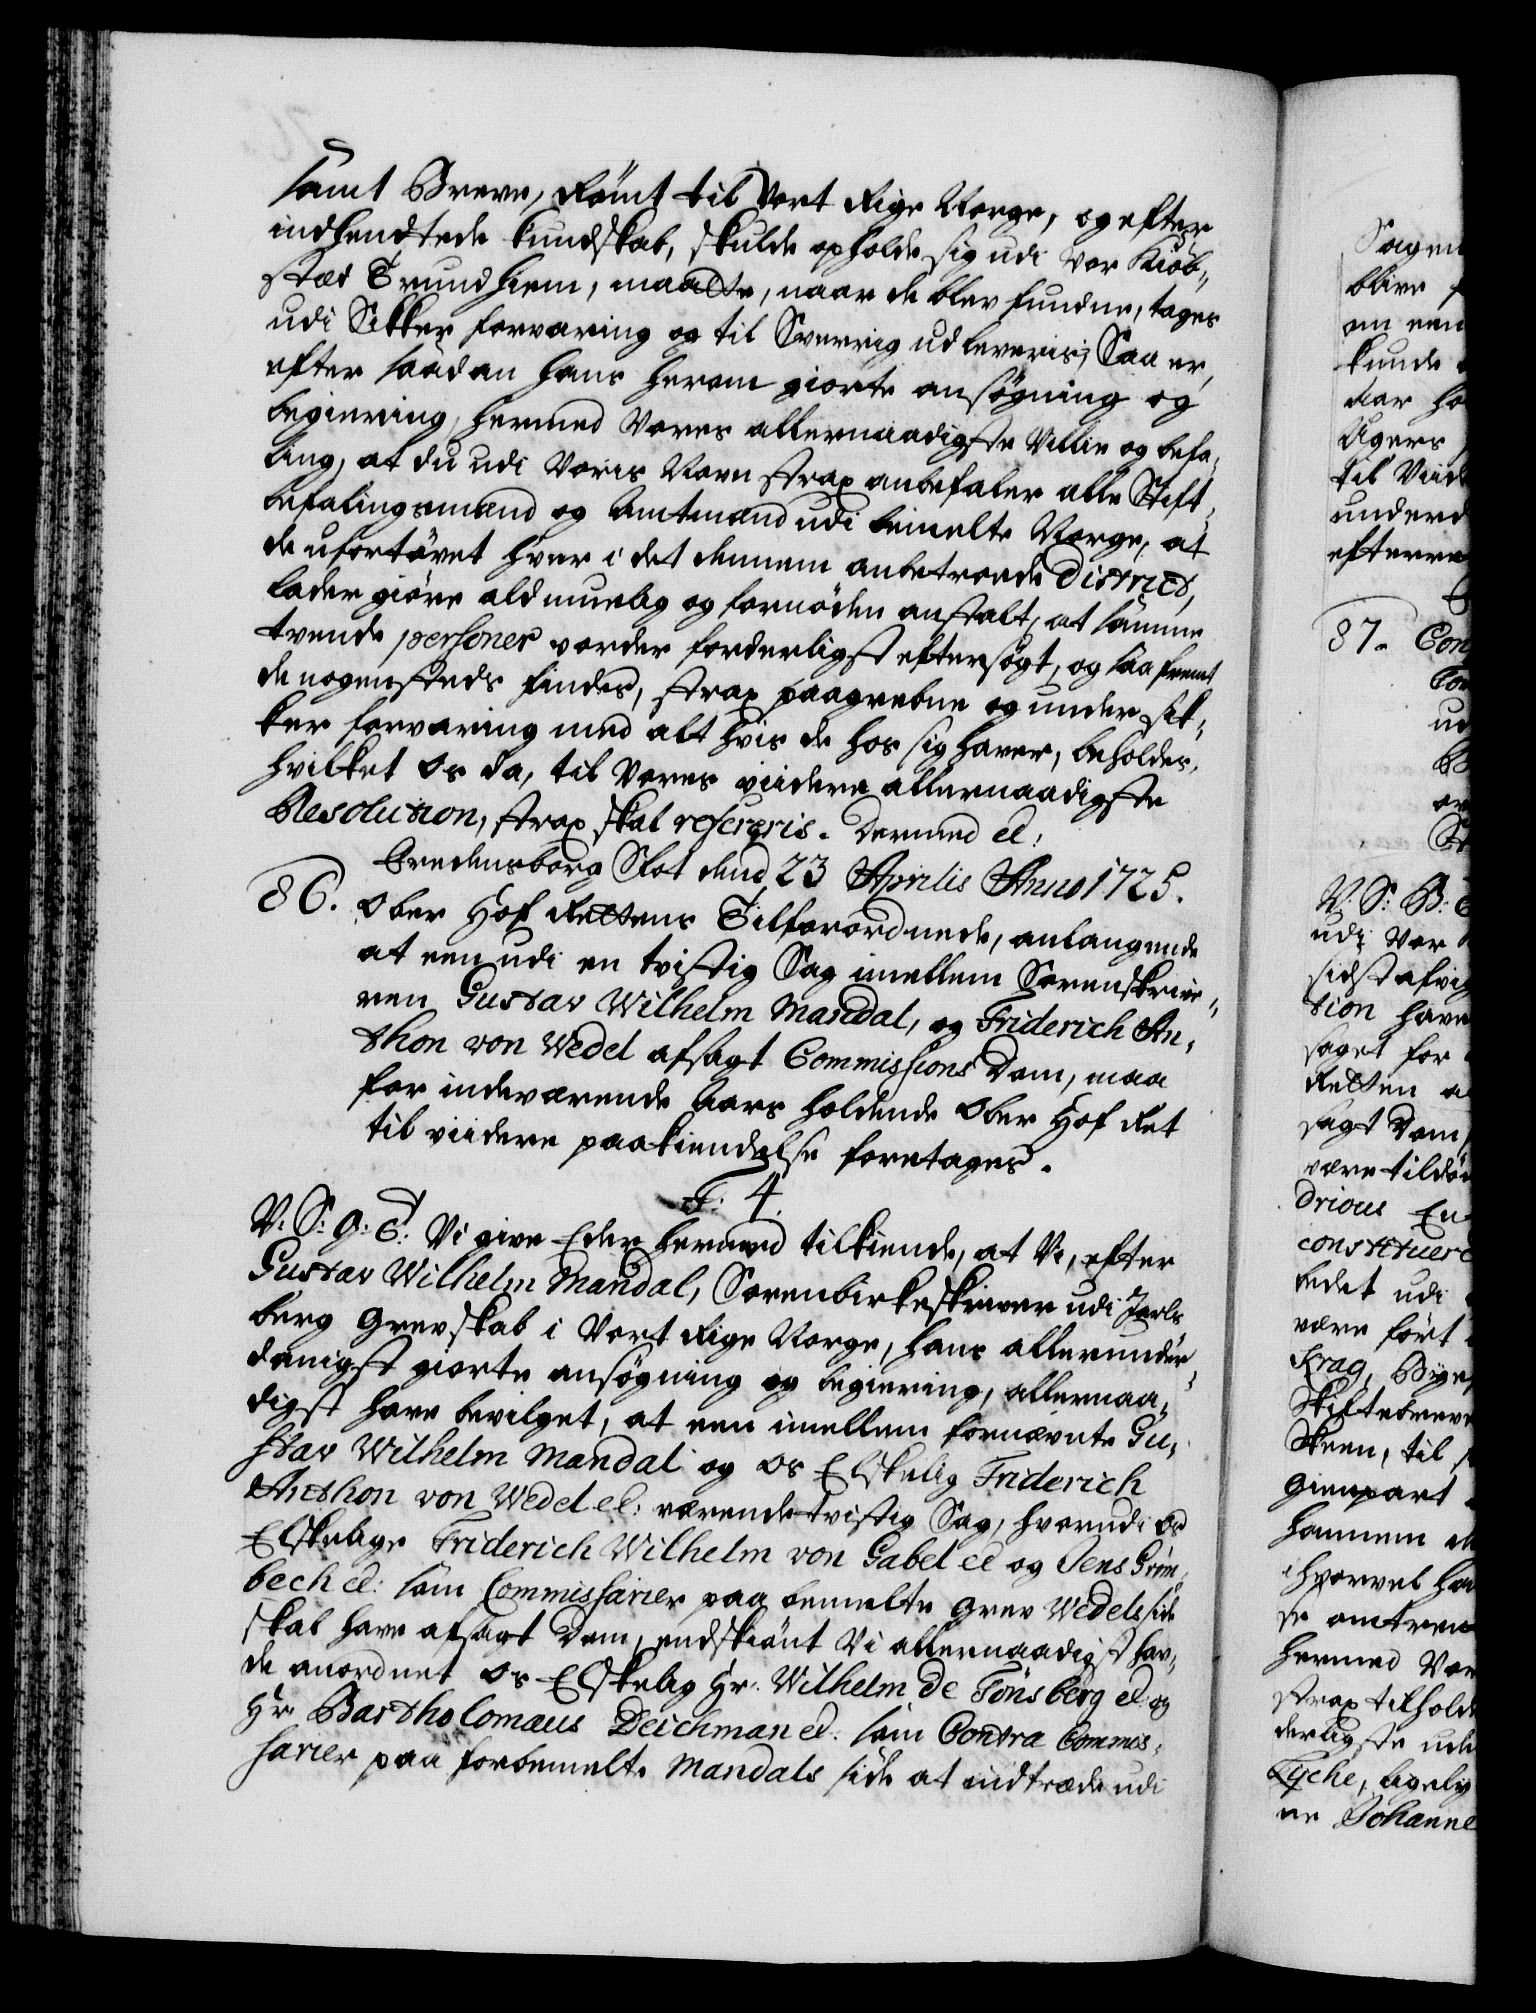 samt Breve, Rømt til Vort Rige Norge, og efter
indhendtede kundskab, skulde opholde sig udi Vor Kiøb-
stæd Trundhiem, maatte, naar de blev fundne, tages
udi Sikker forvaring og til Sverrig udleveris; Saa er,
efter saadan hans herom giorte ansøgning og
begiering, hermed Vores allernaadigste Villie og befa-
ling, at du udi Voris Navn strax anbefaler alle Stift-
befalingsmænd og Amtmænd udi bemelte Norge, at
de ufortøvet hver i det dennem anbetroede District,
lader giøre ald muelig og fornøden anstalt, at samme
tvende personer vorder forderligst eftersøgt, og saa fremt
de nogensteds findes, strax paagrebne og under sik-
ker forvaring med alt hvis de hos sig haver, beholdes,
hvilket Os da, til Vores viidere allernaadigste
Resolution, strax skal refereris. Dermed et:
Fredensborg Slot dend 23 Aprilis Anno 1725.
86. Ober Hof Rettens Tilforordnede, anlangende
at een udi en tvistig Sag imellem Sorenskrive-
ren Gustav Wilhelm Mandal, og Friderich An-
thon von Wedel afsagt Commissions Dom, maa
for indeværende Aars holdende Ober Hof Ret
til viidere paakiendelse foretages.
F: 4.
V. S: G: T: Vi give Eder hermed tilkiende, at Vi, efter
Gustav Wilhelm Mandal, Sorenbirkeskriver udi Jarls
berg Grevskab i Vort Rige Norge, hans allerunder-
danigst giorte ansøgning og begiering, allernaa-
digst have bevilget, at een imellem fornævnte Gu-
stav Wilhelm Mandal og Os Elskelig Friderich
Anthon von Wedel et: værende tvistig Sag, hvorudi Os
Elskelige Friderich Wilhelm von Gabel et og Jens Grim-
bech et: som Commissarier paa bemelte Grev Wedels side
skal have afsagt Dom, endskiønt Vi allernaadigst hav-
de anordnet Os Elskelig Hr. Wilhelm de Tönsberg et og
Hr. Bartholomæus Deichman et: som Contra Commis-
sarier paa forbemelte Mandals side at indtræde udi
Sagen
blive
om een
kunde
dar
Ugers
til Viid
underd
efterre
87. Con
ud
V: S: B:
udi Vor
sidst afvig
tion have
saget for
Retten
sagt Dom
være tildøm
constituere
bedet udi
være ført
Krag, Bye
Skiftebreve
Skeen, til
Gienpart
hannem
hvorvel
se omtren
hermed Vor
strax tilholde
derligste ude
Tyche, ligelig
ne Johanne